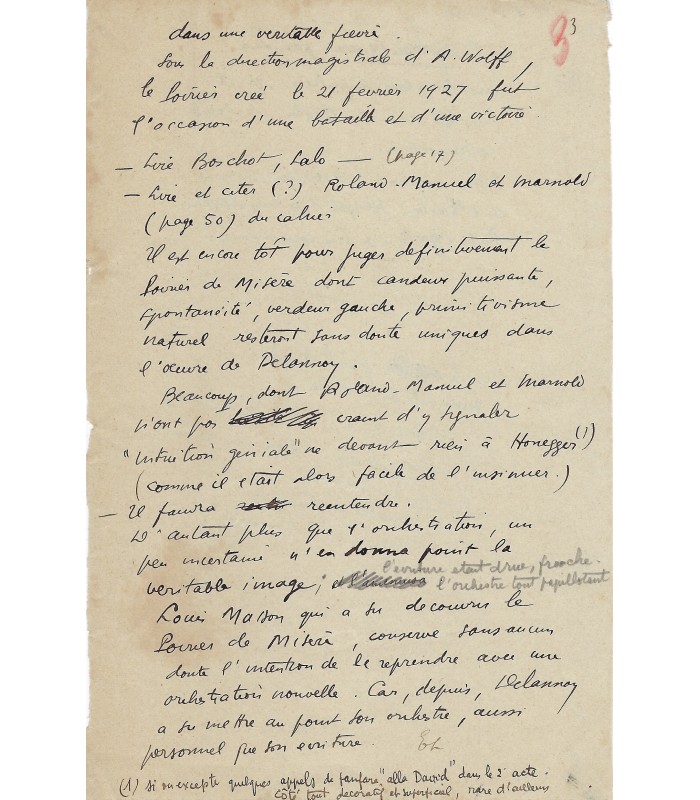 3 3
dans une veritable fievre.
Sous la direction magistrale d'A. Wolff,
le Poirier créé le 21 fevrier 1927 fut
l'occasion d'une bataille et d'une victoire.
— Lire Boschot, Lalo — (page 17)
— Lire et citer (?) Roland-Manuel et Marnold
(page 50) du cahier
Il est encore tôt pour juger definitivement le
Poirier de Misère dont candeur puissante,
spontanéité, verdeur gauche, primitivisme
naturel resteront sans doute uniques dans
l'œuvre de Delannoy.
Beaucoup, dont Roland-Manuel et Marnold
n'ont pas craint d'y signaler
"intuition géniale" ne devant rien à Honegger (1)
(comme il était alors facile de l'insinuer.)
— Il faudra reentendre.
D'autant plus que l'orchestration, un
peu incertaine n'en donna point la
veritable image; l'ecriture etait drue, franche.
l'orchestre tout papillotant
Louis Masson qui a su decouvrir le
Poirier de Misère, conserve sans aucun
doute l'intention de le reprendre avec une
orchestration nouvelle. Car, depuis, Delannoy
a su mettre au point son orchestre, aussi
personnel que son ecriture.
(1) si on excepte quelques appels de fanfare "alla David" dans le 2e acte.
Côté tout decoratif et superficiel, d'ailleurs